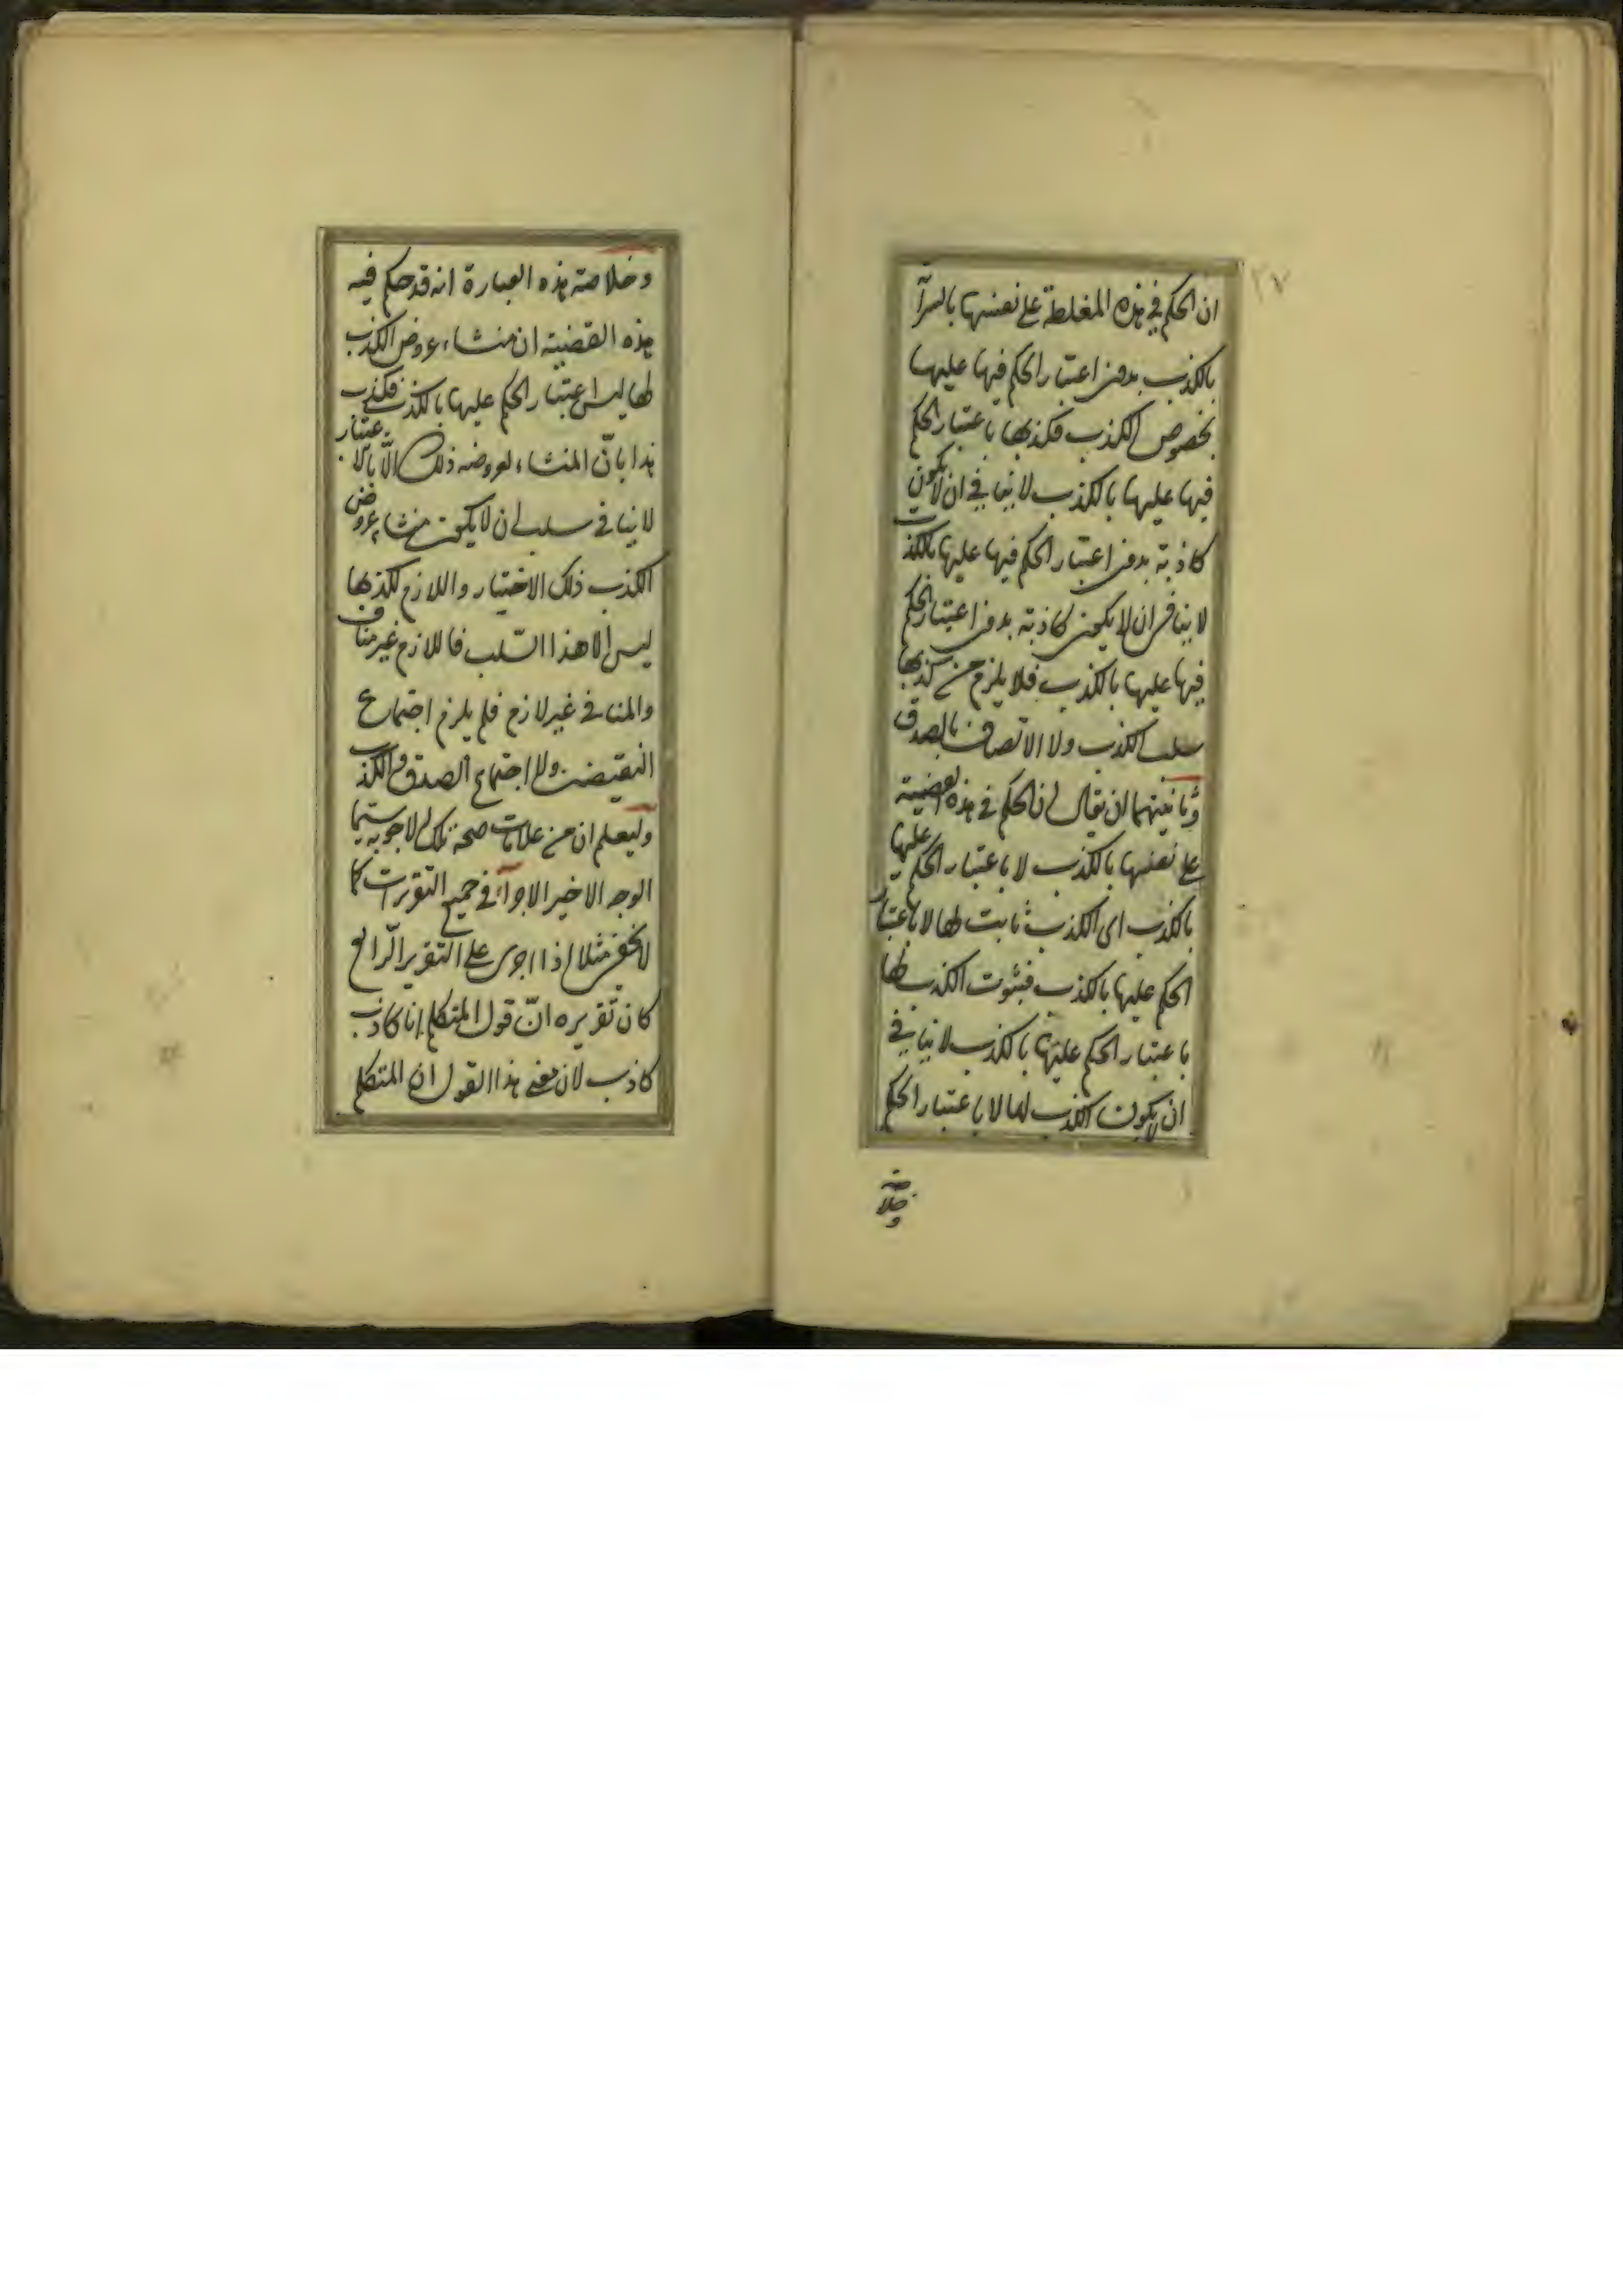 ٢٧
ان الحكم في هذه المغلطة على نفسها بالسرآ
بالكذب بدون اعتبار الحكم فيها عليها
بخصوص الكذب فكذبها باعتبار الحكم
فيها عليها بالكذب لا ينافي ان لا يكون
كاذبة بدون اعتبار الحكم فيها عليها بالكذب
لا ينافي ان لا يكون كاذبة بدون اعتبار الحكم
فيها عليها بالكذب فلا يلزم من كذبها
سلب الكذب ولا الاتصاف بالصدق
وثانيتهما ان يقال ان الحكم في هذه القضية
على نفسها بالكذب لا باعتبار الحكم عليها
بالكذب اى الكذب ثابت لها لا باعتبار
الحكم عليها بالكذب فثبوت الكذب لها
باعتبار الحكم عليها بالكذب لا ينافي
ان لا يكون الكذب لها لا باعتبار الحكم
وخلاصة
وخلاصة هذه العبارة انه قد حكم فيه
هذه القضية ان منشاء عروض الكذب
لها ليس اعتبار الحكم عليها بالكذب فكذب
هذا بانّ المنشاء لعروضه ذلك الّا بالاعتبار
لا ينافي سلب ان لا يكون منشاء عروض
الكذب ذلك الاختيار واللازم لكذبها
ليس الا هذا السّلب فاللازم غير مناف
والمنافي غير لازم فلم يلزم اجتماع
النقيضين ولا اجتماع الصدق والكذب
وليعلم ان من علامات صحة تلك الاجوبه سيّما
الوجه الاخير الاجراء في جميع التقريرات كما
لا يخفى مثلا اذا اجرى على التقرير الرّابع
كان تقريره انّ قول المتكلم انا كاذب
كاذب لان معنى هذا القول ان المتكلم